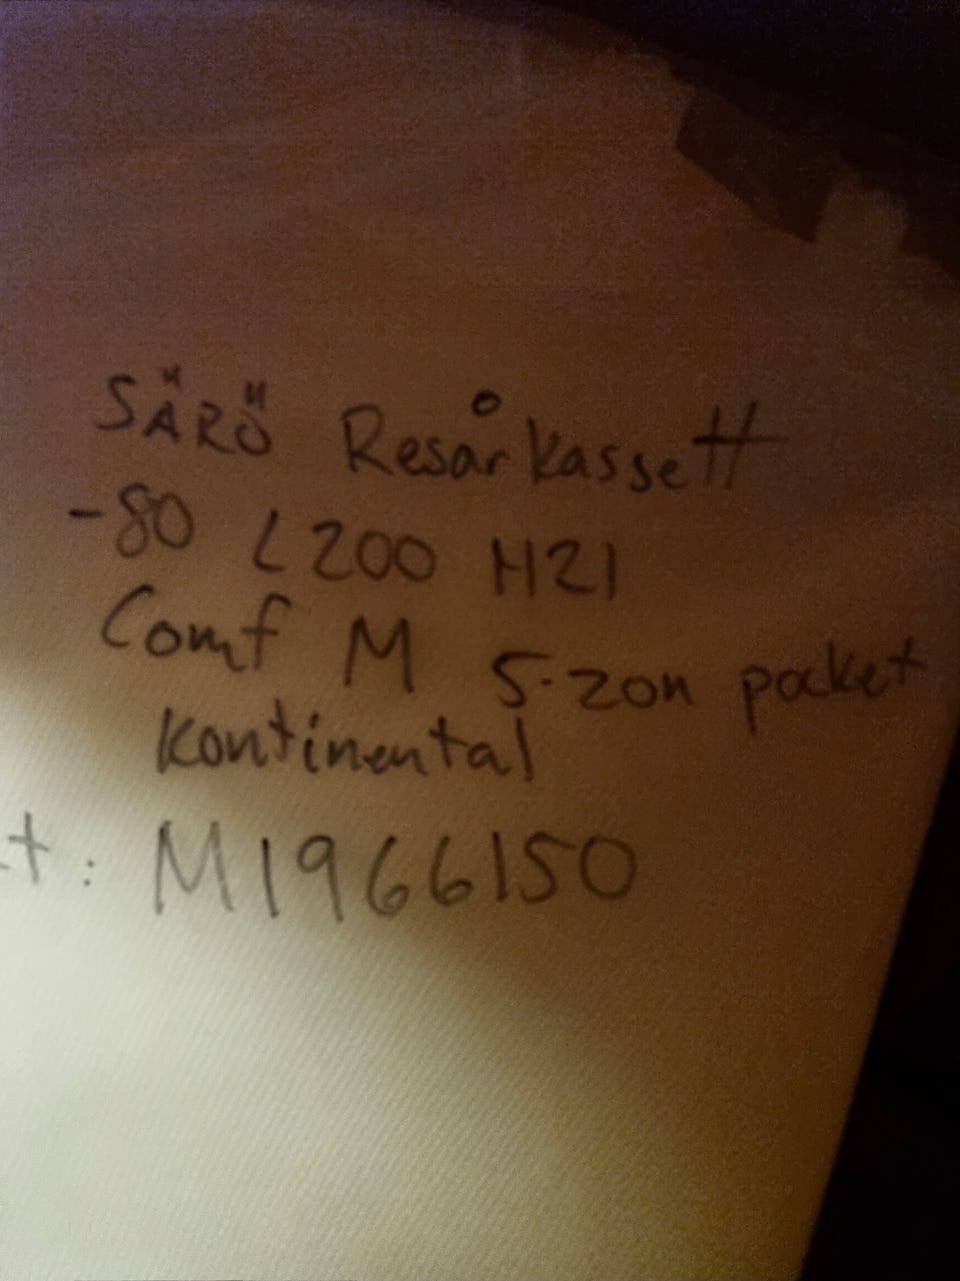 SÄRÖ Resårkassett
-80 L200 H21
Comf M 5-zon pocket
Kontinental
t: M1966150